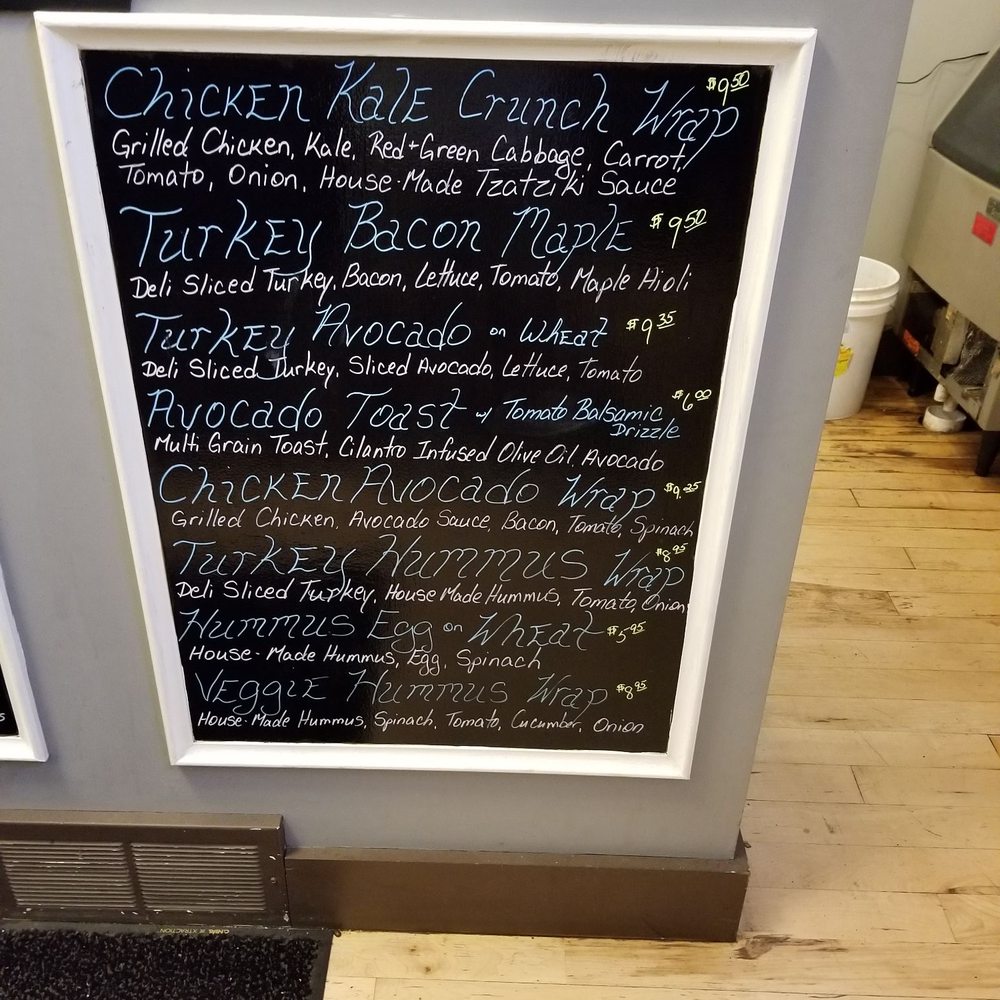 Chicken Kale Crunch Wrap $9.50
Grilled Chicken, Kale, Red + Green Cabbage, Carrot,
Tomato, Onion, House-Made Tzatziki Sauce
Turkey Bacon Maple $9.50
Deli Sliced Turkey, Bacon, Lettuce, Tomato, Maple Aioli
Turkey Avocado on Wheat $9.35
Deli Sliced Turkey, Sliced Avocado, Lettuce, Tomato
Avocado Toast w/ Tomato Balsamic $6.00
Drizzle
Multi Grain Toast, Cilanto Infused Olive Oil, Avocado
Chicken Avocado Wrap $9.25
Grilled Chicken, Avocado Sauce, Bacon, Tomato, Spinach
Turkey Hummus Wrap $8.95
Deli Sliced Turkey, House Made Hummus, Tomato, Onion
Hummus Egg on Wheat $5.95
House-Made Hummus, Egg, Spinach
Veggie Hummus Wrap $8.95
House-Made Hummus, Spinach, Tomato, Cucumber, Onion